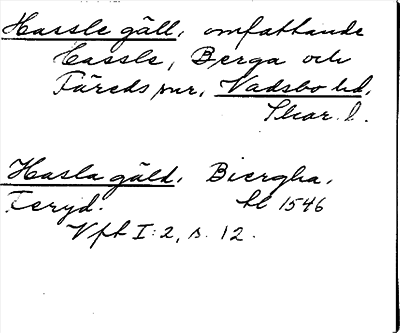 Hassle gäll, omfattande
Hassle, Berga och
Färeds snr, Vadsbo hd,
Skar. l.
Hasla gäld, Biergha,
Feryd. hl 1546
Vfh I:2, s. 12.